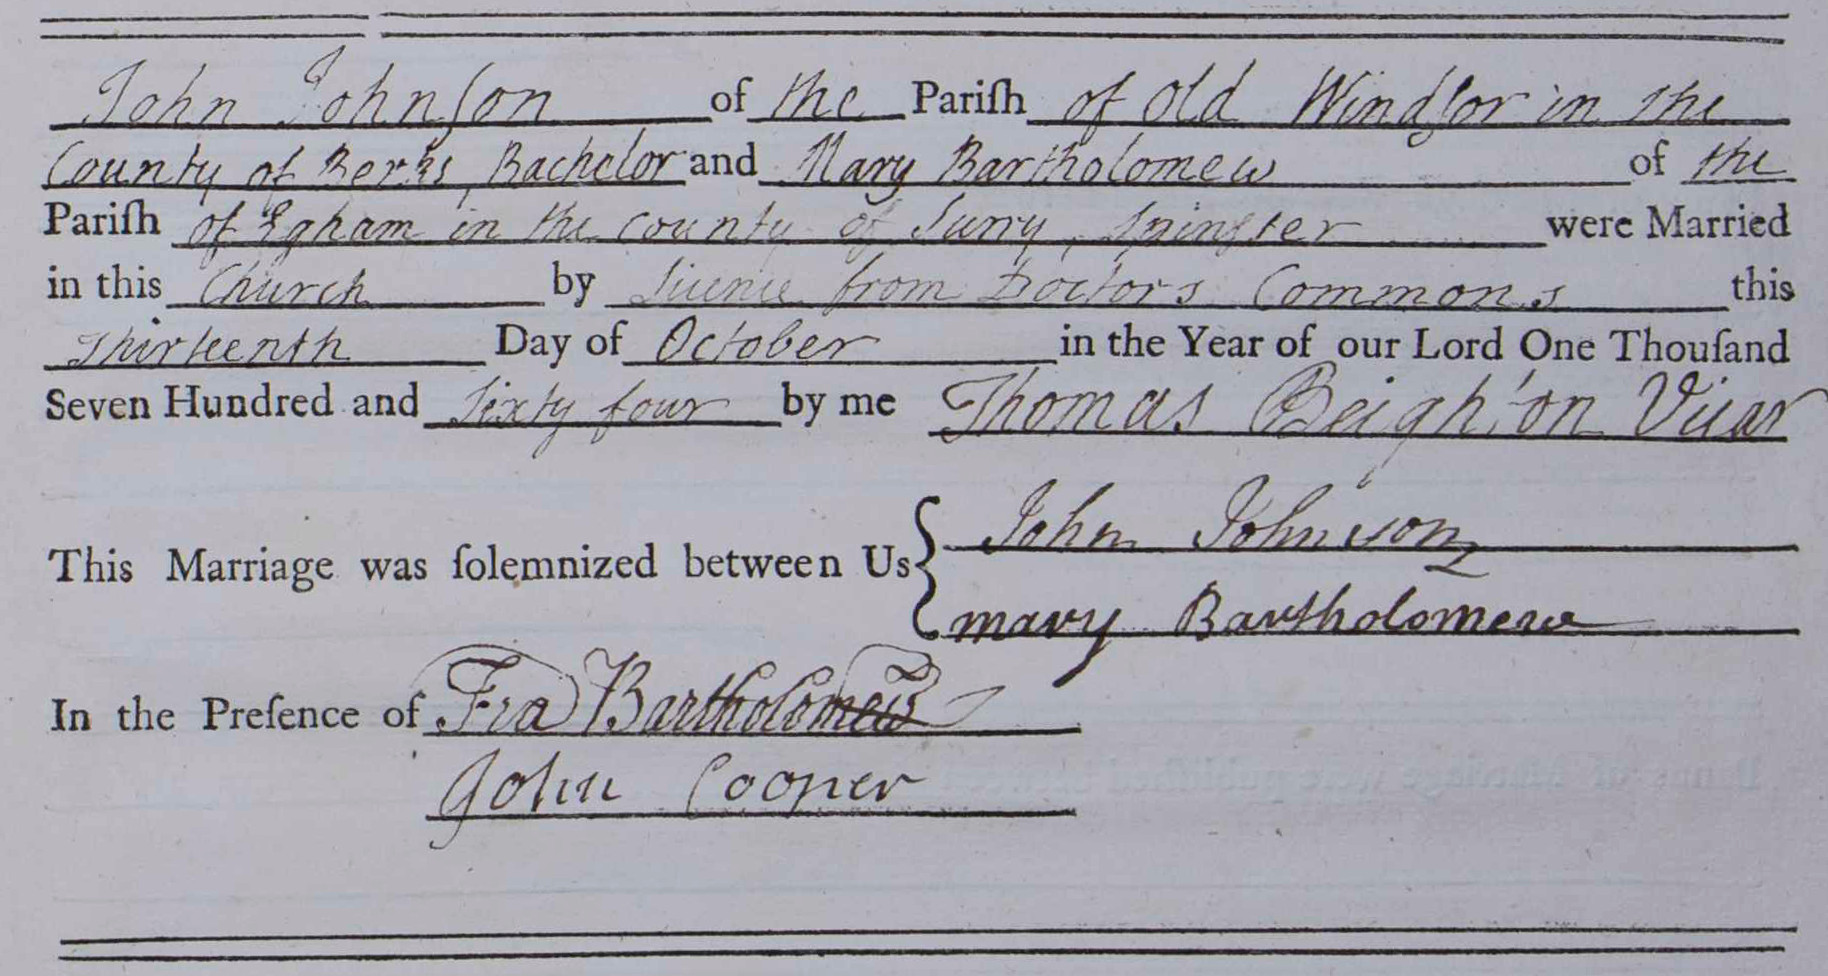 John Johnſon of the Pariſh of Old Windſor in the
County of Berks, Bachelor and Mary Bartholomew of the
Pariſh of Egham in the County of Surry, Spinſter were Married
in this Church by Licence from Doctors Commons this
Thirteenth Day of October in the Year of our Lord One Thouſand
Seven Hundred and Sixty four by me Thomas Beighton Vicar
This Marriage was ſolemnized between Us { John Johnson
mary Bartholomew
In the Preſence of Fra Bartholomew
John Cooper